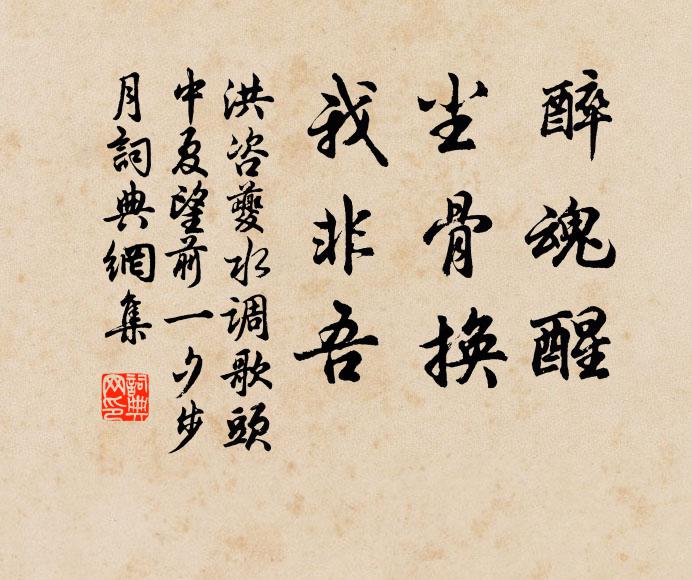 醉魂醒
尘骨换
我非吾
洪咨夔水调歌頭
中夏望前一夕步
月詞典網集
詞典
网印